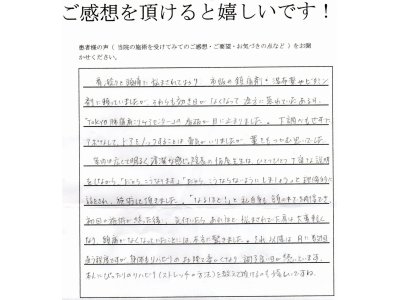 ご感想を頂けると嬉しいです！
患者様の声（当院の施術を受けてみてのご感想・ご要望・お気づきの点など）をお聞
かせください。
肩こりと頭痛に悩まされており、市販の鎮痛剤や湿布薬やビタミン
剤に頼っていましたが、それも効き目がなくなって途方に暮れていたある日、
「Tokyo腰痛肩こりラボセンター」の看板が目に止まりました。下調べもせずて
アポなしで、ドアをノックすることは勇気がいりましたが、藁をもつかむ思いでした。
室内は広くて明るく清潔な感じ。院長の先生は、ひとつひとつ丁寧な説明
をしながら「だから、こうなります」「だから、こうならないようにしましょう」と理論的に
話をされ、施術して頂きました。「なるほど！」と私自身も納得できて
初回の施術が終った後、気付いたらあれほど悩まされていた肩は大変軽く
なり、頭痛がなくなっていたことには、本当に驚きました。それ以降は、月に数回
通う程度ですが、身体もリハビリのお陰で楽しくなり調子良い日が続いています。
私にぴったりのリハビリ（ストレッチの方法）を教えて頂けるのも嬉しいですね。